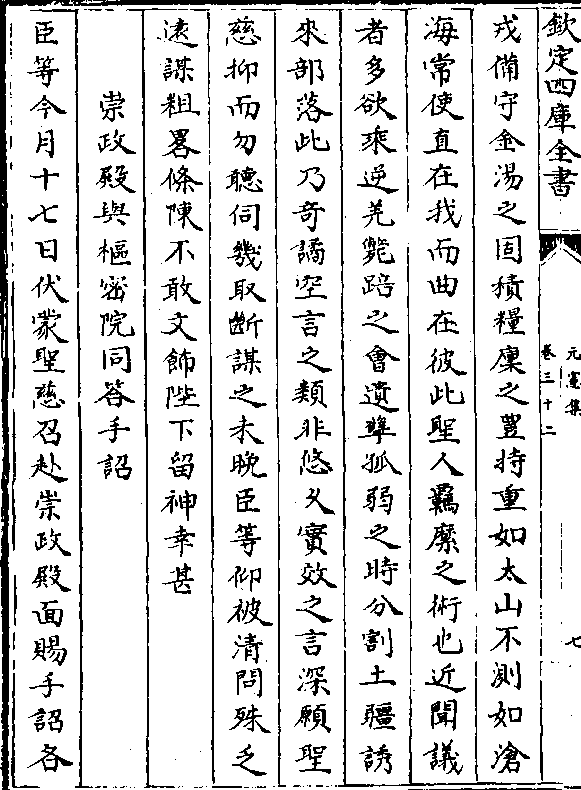 欽定四庫全書
元憲集
卷三十二
七
戎備守金湯之固積糧廩之豐持重如太山不測如滄
海常使直在我而曲在彼此聖人羈縻之術也近聞議
者多欲乘逆羌斃踣之會遺孽孤弱之時分割土疆誘
來部落此乃奇譎空言之類非悠久實效之言深願聖
慈抑而勿聽伺幾取斷謀之未晚臣等仰被清問殊乏
遠謀粗畧條陳不敢文飾陛下留神幸甚
崇政殿與樞密院同答手詔
臣等今月十七日伏蒙聖慈召赴崇政殿面賜手詔各